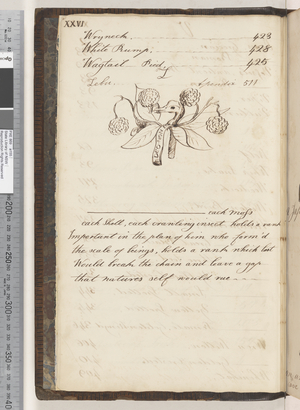 XXVI
Wryneck. 423
White Rump. 428
Wagtail Pied 425
Zebu 511
each moss
each Shell, each crawling insect holds a rank
Important in the plan of him who form'd
the scale of beings, holds a rank which lost
Would break the chain and leave a gap
that natures self would rue